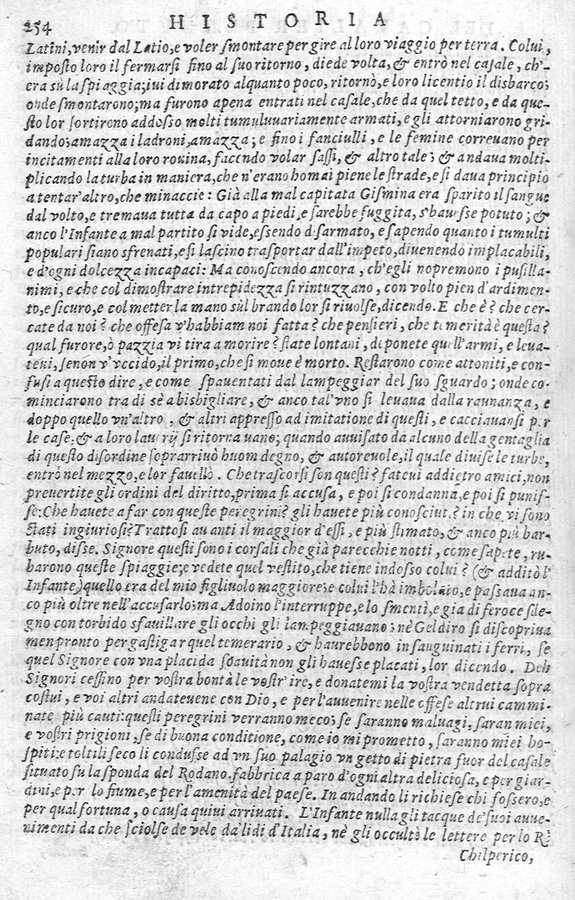 254 HISTORIA
Latini, venir dal Latio, e voler smontare per gire al loro viaggio per terra. Colui,
imposto loro il fermarsi fino al suo ritorno, diede volta, & entrò nel casale, ch'
era sù la spiaggia; iui dimorato alquanto poco, ritornò, e loro licentio il disbarco;
onde smontarono; ma furono apena entrati nel casale, che da quel tetto, e da que
sto lor sortirono addosso molti tumuluuariamente armati, e gli attorniarono gri
dando; amazza i ladroni, amazza; e fino i fanciulli, e le femine correuano per
incitamenti alla loro rouina, facendo volar sassi, & altro tale; & andaua molti-
plicando la turba in maniera, che n'erano homai piene le strade, e si daua principio
a tentar'altro, che minaccie: Già alla mal capitata Gismina era sparito il sangue
dal volto, e tremaua tutta da capo a piedi, e sarebbe fuggita, s'hauesse potuto; &
anco l'Infante a mal partito si vide, essendo disarmato, e sapendo quanto i tumulti
populari siano sfrenati, e si lascino trasportar dall'impeto, diuenendo implacabili,
e d'ogni dolcezza incapaci: Ma conoscendo ancora, ch'egli nopremono i pusilla-
nimi, e che col dimostrare intrepidezza si rintuzzano, con volto pien d'ardimen-
to, e sicuro, e col metter la mano sùl brando lor si riuolse, dicendo. E che è? che cer-
cate da noi? che offesa v'habbiam noi fatta? che pensieri, che temerità è questa?
qual furore, ò pazzia vi tira a morire? state lontani, deponete quell'armi, e leua-
teui, se non v'vccido, il primo, che si moue è morto. Restarono come attoniti, e con-
fusi a questo dire, e come spauentati dal lampeggiar del suo sguardo; onde co-
minciarono tra di sè a bisbigliare, & anco tal'vno si leuaua dalla raunanza, e
doppo quello vn'altro, & altri appresso ad imitatione di questi, e cacciauansi per
le case, & a loro lauorij si ritornauano; quando auuisato da alcuno della gentaglia
di questo disordine soprarriuò huom degno, & autoreuole, il quale diuise le turbe,
entrò nel mezzo, e lor fauellò. Che trascorsi son questi? fateui addietro amici, non
preuertite gli ordini del diritto, prima si accusa, e poi si condanna, e poi si punis-
se: Che hauete a far con queste peregrini? gli hauete più conosciuti? in che vi sono
stati ingiuriosi? Trattosi auanti il maggior d'essi, e più stimato, & anco più bar-
buto, disse. Signore questi sono i corsali che già parecchie notti, come sapete, ru-
barono queste spiaggie; e vedete quel vestito, che tiene indosso colui? (& additò l'
Infante) quello era del mio figliuolo maggiore; e colui l'hà imbolato, e passaua an-
co più oltre nell'accusarlo; ma Adoino l'interruppe, e lo smentì, e gia di feroce sde-
gno con torbido sfauillare gli occhi gli lampeggiauano; nè Geldiro si discopriua
men pronto per gastigar quel temerario, & haurebbono insanguinati i ferri, se
quel Signore con vna placida soauità non gli hauesse placati, lor dicendo. Deh
Signori cessino per vostra bontà le vostr'ire, e donatemi la vostra vendetta sopra
costui, e voi altri andateuene con Dio, e per l'auuenire nelle offese altrui cammi-
nate più cauti: questi peregrini verranno meco; se saranno maluagi, saran miei,
e vostri prigioni, se di buona conditione, come io mi prometto, saranno miei ho-
spiti: e toltili seco li condusse ad vn suo palagio vn getto di pietra fuor del casale
situato su la sponda del Rodano, fabbrica a paro d'ogni altra deliciosa, e per giar-
dini, e per lo fiume, e per l'amenità del paese. In andando li richiese chi fossero, e
per qual fortuna, o causa quiui arriuati. L'Infante nulla gli tacque de'suoi auue-
nimenti da che sciolse de vele da'lidi d'Italia, nè gli occultò le lettere per lo Rè
Chilperico,